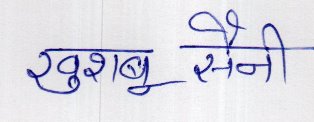 खुशबू सैनी